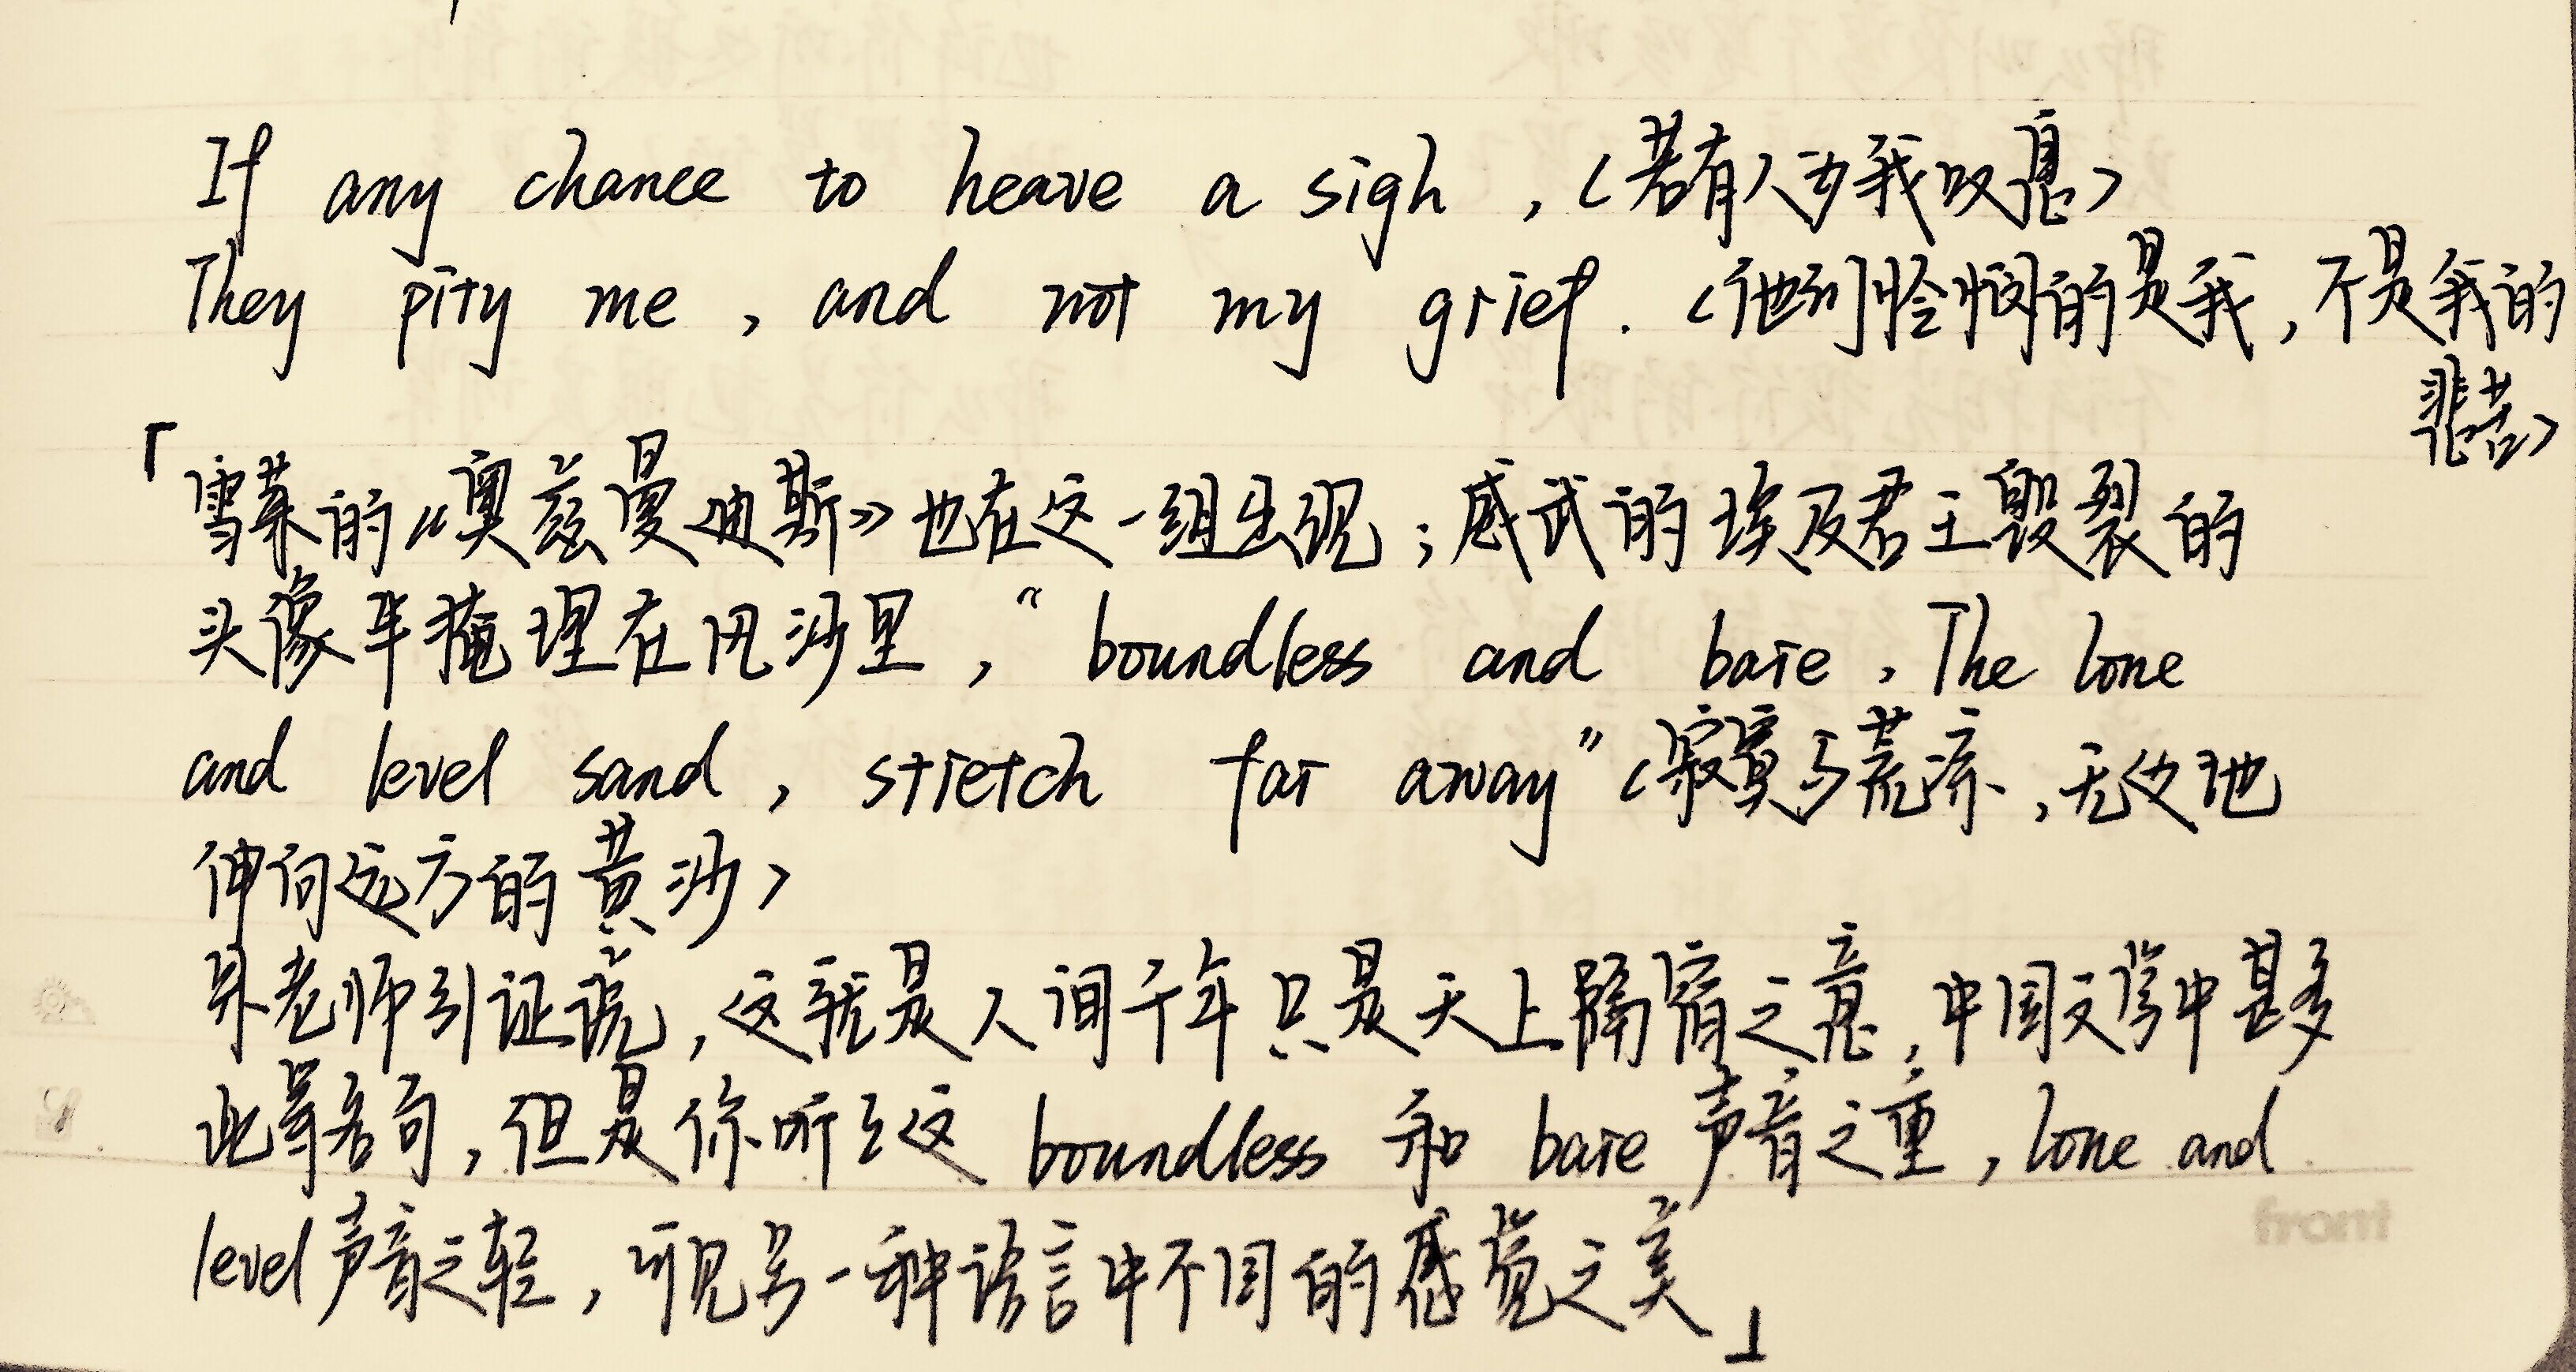 If any chance to heave a sigh ,（若有人为我叹息）
They pity me , and not my grief .（他们怜悯的是我,不是我的
悲苦）
「雪莱的《奥兹曼迪斯》也在这一组出现；威武的埃及君王毁裂的
头像半掩埋在风沙里，“boundless and bare , The lone
and level sand , stretch far away”（寂寞与荒凉,无边地
伸向远方的黄沙）
朱老师引证说,这就是人间千年只是天上隔宿之意,中国文学中甚多
此等名句,但是你听听这 boundless 和 bare 声音之重, lone and
level 声音之轻，可见另一种语言中不同的感觉之美」
front